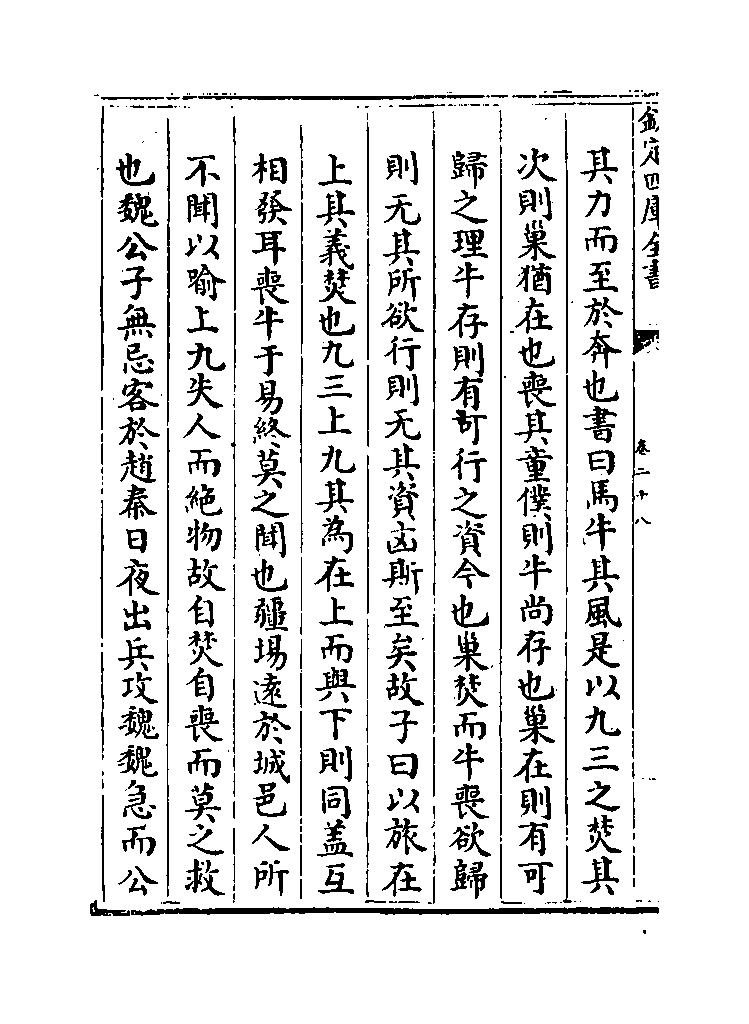 欽定四庫全書
卷二十八
其力而至於奔也書曰馬牛其風是以九三之焚其
次則巢猶在也喪其童僕則牛尚存也巢在則有可
歸之理牛存則有可行之資今也巢焚而牛喪欲歸
則无其所欲行則无其資凶斯至矣故子曰以旅在
上其義焚也九三上九其為在上而與下則同盖互
相發耳喪牛于易終莫之聞也疆埸遠於城邑人所
不聞以喻上九失人而絶物故自焚自喪而莫之救
也魏公子無忌客於趙秦日夜出兵攻魏魏急而公